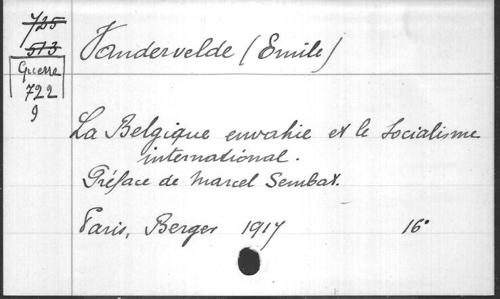 725
513
Guerre
722
9
Vandervelde (Emile)
La Belgique envahie et le Socialisme
international.
Préface de Marcel Sembat.
Paris, Berger 1917 16°